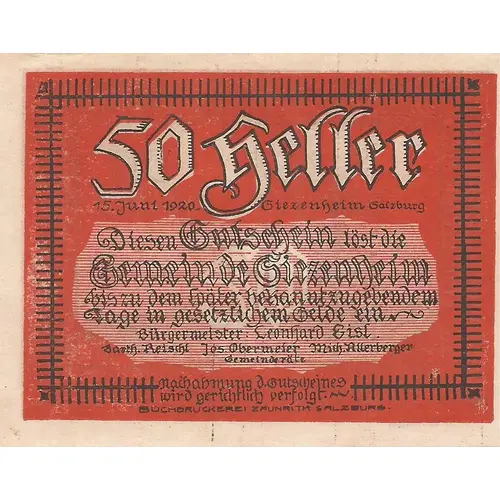 50 Heller
15. Juni 1920 Siezenheim Salzburg
Diesen Gutschein löst die
Gemeinde Siezenheim
bis zu dem später bekanntzugebendem
Tage in gesetzlichem Gelde ein.
Bürgermeister Leonhard Eisl
Barth. Reischl Jos. Obermeier Mich. Allerberger
Gemeinderäte
Nachahmung d. Gutscheines
wird gerichtlich verfolgt.
BUCHDRUCKEREI ZAUNRITH SALZBURG.